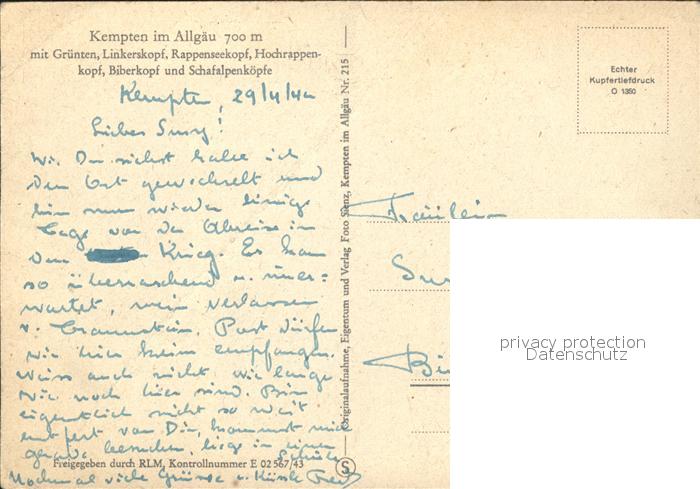 Kempten im Allgäu 700 m
mit Grünten, Linkerskopf, Rappenseekopf, Hochrappen-
kopf, Biberkopf und Schafalpenköpfe
Kempten, 29/4/44
Liebes Susy!
Wie Du siehst habe ich
den Ort gewechselt und
bin nun wieder einige
Tage vor der Abreise in
den Krieg. Es kam
so überraschend u. uner=
wartet, mein verlassen
v. Traunstein. Post dürfen
wir hier keine empfangen.
Weiss auch nicht wie lange
wir noch hier sind. Bin
eigentlich nicht so weit
entfert von Dir, kommst mich
besuchen, liege in einer
Schule
Nochmal viele Grüsse u. Küsse
Freigegeben durch RLM, Kontrollnummer E 02 567/43
Originalaufnahme, Eigentum und Verlag Foto Sienz, Kempten im Allgäu Nr. 215
S
Echter
Kupfertiefdruck
O 1350
Fräulein
privacy protection
Datenschutz